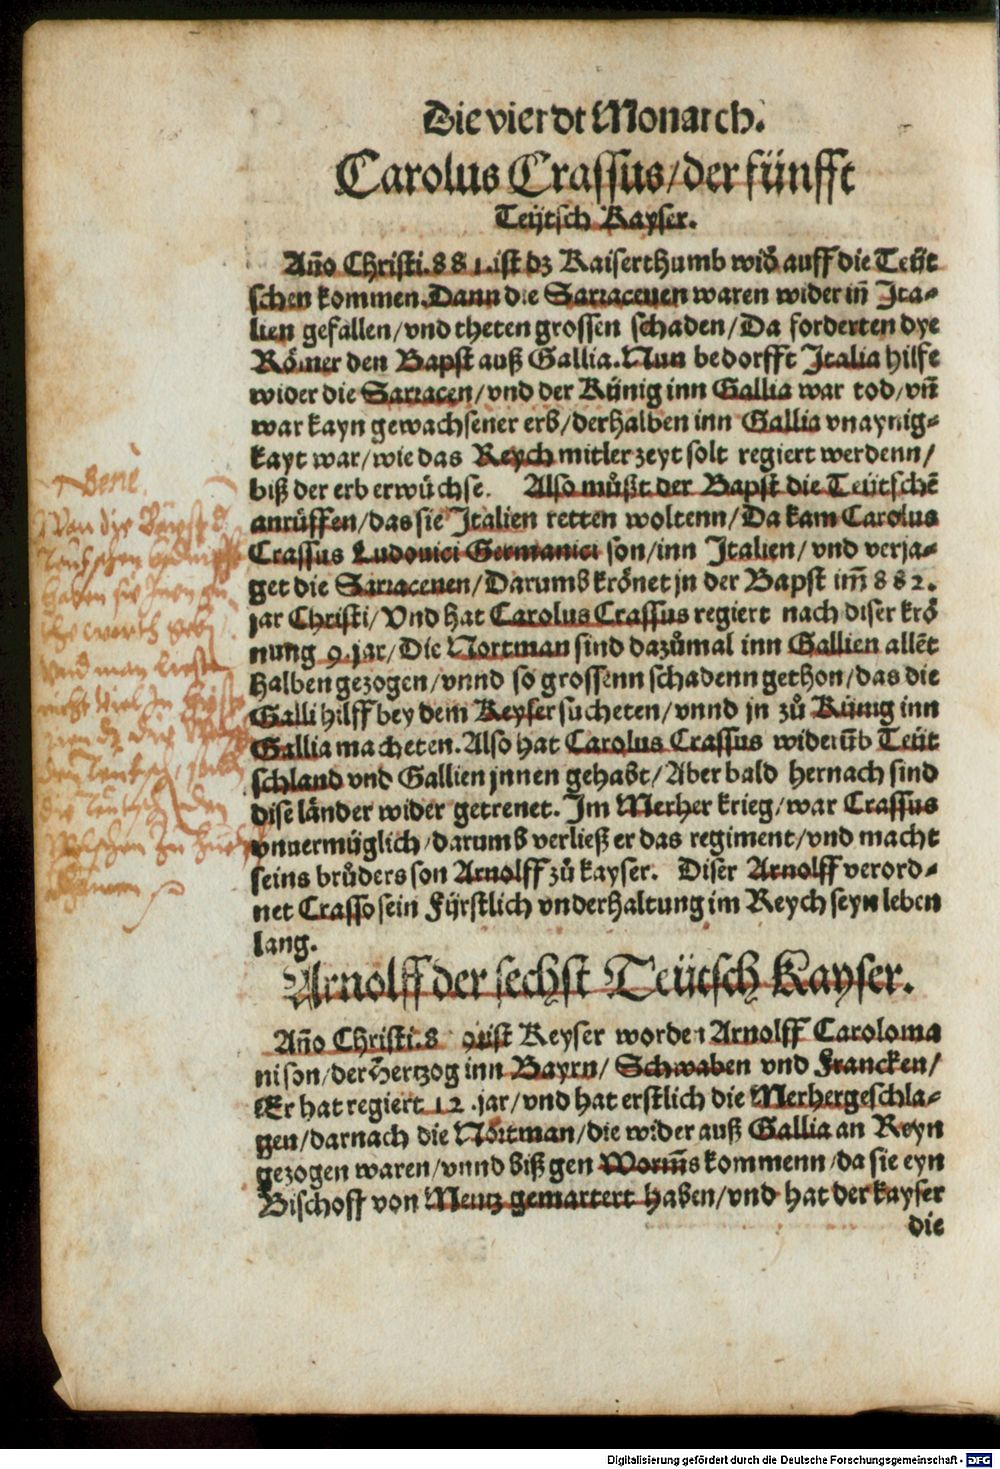 Die vierdt Monarch.
Carolus Crassus/der fünfft
Teütsch Kayser.
Año Christi.881.ist dz Kaiserthumb wid̃ auff die Teüt
schen kommen. Dann die Sarracenen waren wider iñ Ita-
lien gefallen/vnd theten grossen schaden/Da forderten dye
Römer den Bapst auß Gallia. Nun bedorfft Italia hilfe
wider die Sarracen/vnd der Künig inn Gallia war tod/vñ
war kayn gewachsener erb/derhalben inn Gallia vnaynig-
kayt war/wie das Reych mitler zeyt solt regiert werdenn/
biß der erb erwüchse. Also můßt der Bapst die Teütschẽ
anrüffen/das sie Italien retten woltenn/Da kam Carolus
Crassus Ludouici Germanici son/inn Italien/vnd verja-
get die Sarracenen/Darumb krönet jn der Bapst im̃ 882.
jar Christi/Vnd hat Carolus Crassus regiert nach diser krö
nung 9.jar/Die Nortman sind dazůmal inn Gallien allẽt
halben gezogen/vnnd so grossenn schadenn gethon/das die
Galli hilff bey dem Keyser sucheten/vnnd jn zů Künig inn
Gallia macheten. Also hat Carolus Crassus widerũb Teüt
schland vnd Gallien jnnen gehabt/Aber bald hernach sind
dise länder wider getrenet. Im Merher krieg/war Crassus
vnuermüglich/darumb verließ er das regiment/vnd macht
seins brůders son Arnolff zů kayser. Diser Arnolff verord-
net Crasso sein Fürstlich vnderhaltung im Reych seyn leben
lang.
Arnolff der sechst Teütsch Kayser.
Año Christi.8 91 ist Keyser worden Arnolff Caroloma
ni son/der Hertzog inn Bayrn/ Schwaben vnd Francken/
Er hat regiert 12.jar/vnd hat erstlich die Merher geschla-
gen/darnach die Nortman/die wider auß Gallia an Reyn
gezogen waren/vnnd biß gen Worm̃s kommenn/da sie eyn
Bischoff von Mentz gemartert haben/vnd hat der kayser
die
Bene.
Digitalisierung gefördert durch die Deutsche Forschungsgemeinschaft - DFG